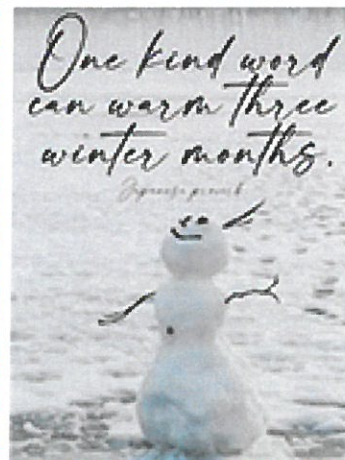 One kind word
can warm three
winter months.
Japanese proverb